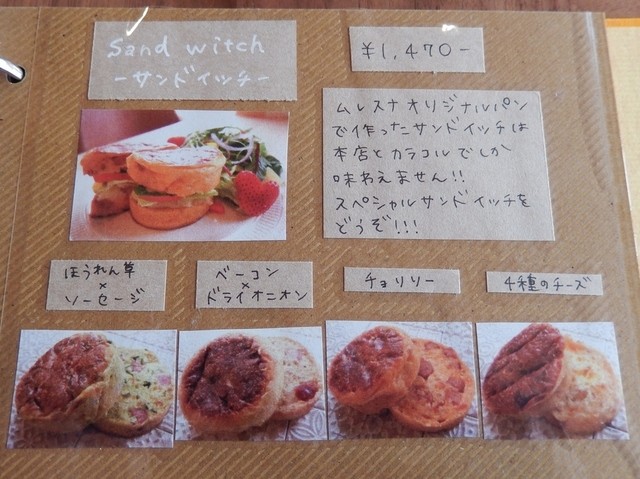 Sand witch
－サンドイッチ－
¥1,470-
ムレスナオリジナルパン
で作ったサンドイッチは
本店とカラコルでしか
味わえません!!
スペシャルサンドイッチを
どうぞ!!!
ほうれん草
×
ソーセージ
ベーコン
×
ドライオニオン
チョリソー
4種のチーズ